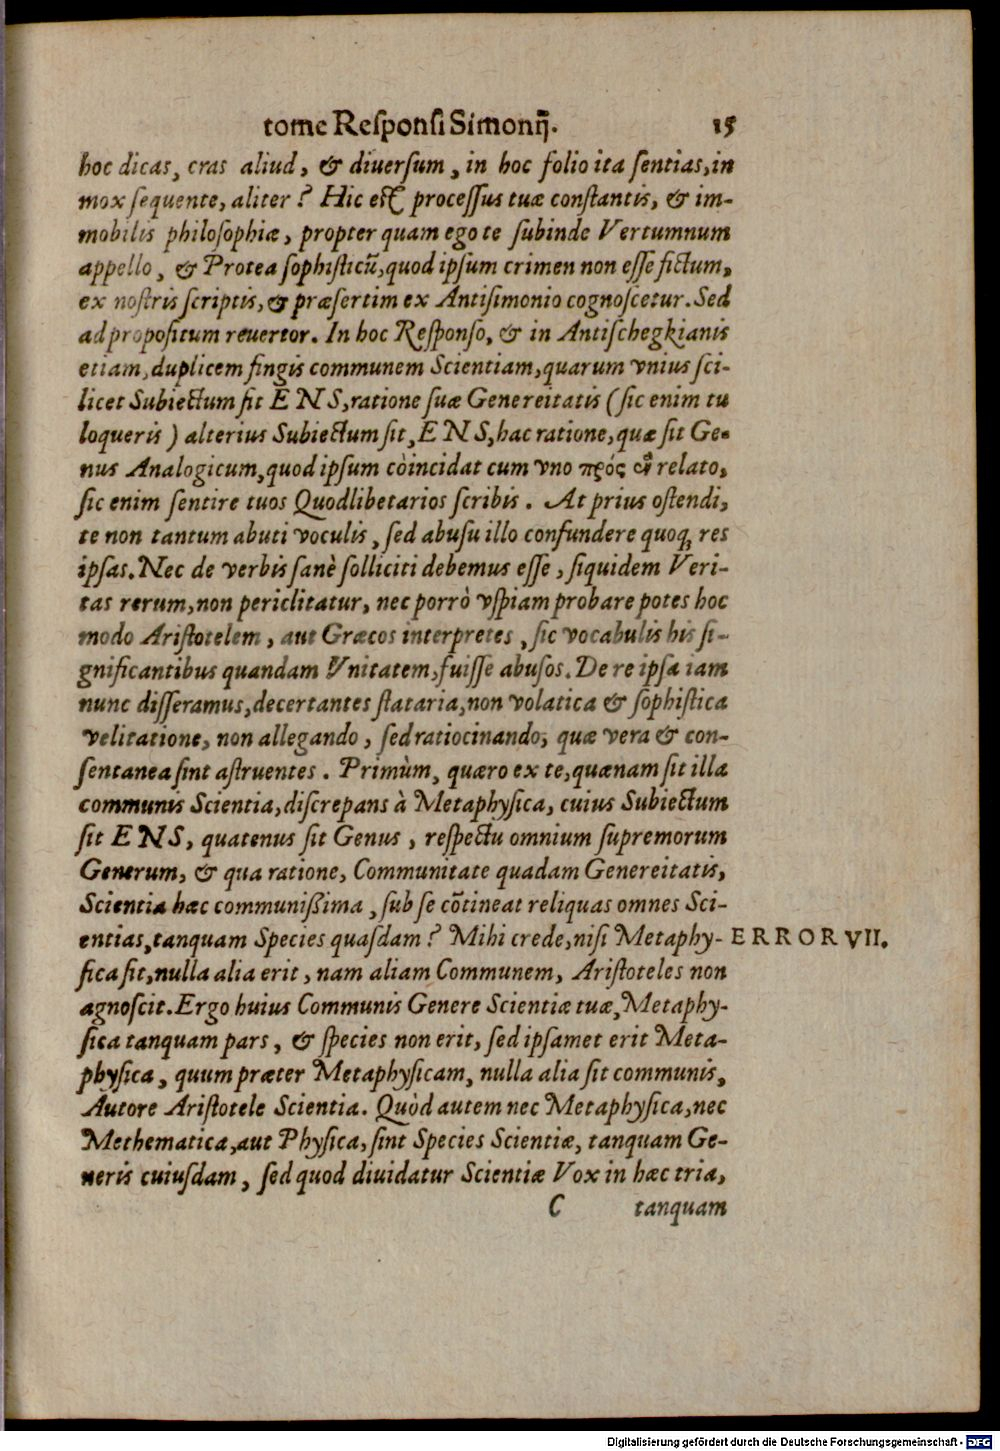 tome Reſponſi Simonij. 15
hoc dicas, cras aliud, & diuerſum, in hoc folio ita ſentias, in
mox ſequente, aliter? Hic eſt proceſſus tuæ conſtantis, & im-
mobilis philoſophiæ, propter quam ego te ſubinde Vertumnum
appello, & Protea ſophiſticũ, quod ipſum crimen non eſſe fictum,
ex noſtris ſcriptis, & præſertim ex Antiſimonio cognoſcetur. Sed
ad propoſitum reuertor. In hoc Reſponſo, & in Antiſchegkianis
etiam, duplicem fingis communem Scientiam, quarum vnius ſci-
licet Subiectum ſit ENS, ratione ſuæ Genereitatis (ſic enim tu
loqueris) alterius Subiectum ſit, ENS, hac ratione, quæ ſit Ge-
nus Analogicum, quod ipſum còincidat cum vno πρός ἓν relato,
ſic enim ſentire tuos Quodlibetarios ſcribis. At prius oſtendi,
te non tantum abuti voculis, ſed abuſu illo confundere quoq; res
ipſas. Nec de verbis ſanè ſolliciti debemus eſſe, ſiquidem Veri-
tas rerum, non periclitatur, nec porrò vſpiam probare potes hoc
modo Ariſtotelem, aut Græcos interpretes, ſic vocabulis his ſi-
gnificantibus quandam Vnitatem, fuiſſe abuſos. De re ipſa iam
nunc diſſeramus, decertantes ſtataria, non volatica & ſophiſtica
velitatione, non allegando, ſed ratiocinando, quæ vera & con-
ſentanea ſint aſtruentes. Primùm, quæro ex te, quænam ſit illa
communis Scientia, diſcrepans à Metaphyſica, cuius Subiectum
ſit ENS, quatenus ſit Genus, reſpectu omnium ſupremorum
Generum, & qua ratione, Communitate quadam Genereitatis,
Scientia hæc communißima, ſub ſe cõtineat reliquas omnes Sci-
entias, tanquam Species quaſdam? Mihi crede, niſi Metaphy- ERROR VII.
ſica ſit, nulla alia erit, nam aliam Communem, Ariſtoteles non
agnoſcit. Ergo huius Communis Genere Scientiæ tuæ, Metaphy-
ſica tanquam pars, & ſpecies non erit, ſed ipſamet erit Meta-
phyſica, quum præter Metaphyſicam, nulla alia ſit communis,
Autore Ariſtotele Scientia. Quòd autem nec Metaphyſica, nec
Methematica, aut Phyſica, ſint Species Scientiæ, tanquam Ge-
neris cuiuſdam, ſed quod diuidatur Scientiæ Vox in hæc tria,
C tanquam
Digitalisierung gefördert durch die Deutsche Forschungsgemeinschaft - DFG